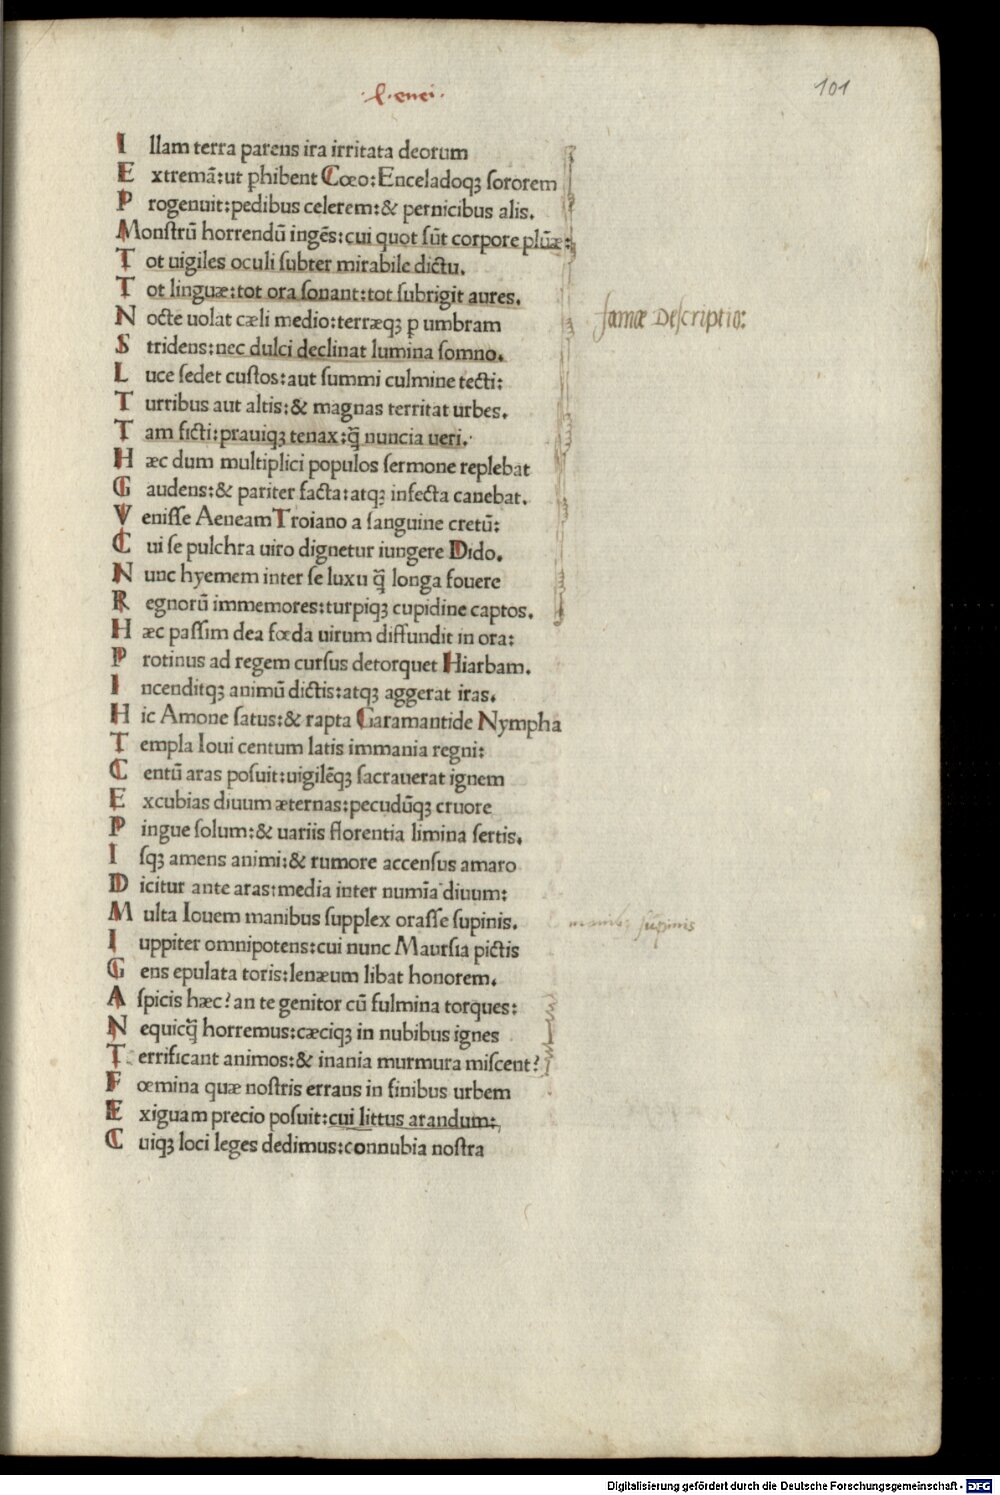 ·l·enei·
101
I llam terra parens ira irritata deorum
E xtremā:ut phibent Cœo:Enceladoqꝫ sororem
P rogenuit:pedibus celerem:& pernicibus alis.
Monstrū horrendū ingēs:cui quot sūt corpore plūæ:
T ot uigiles oculi subter mirabile dictu.
T ot linguæ:tot ora sonant:tot subrigit aures.
famæ Descriptio:
N octe uolat cæli medio:terræqꝫ p umbram
S tridens:nec dulci declinat lumina somno.
L uce sedet custos:aut summi culmine tecti:
T urribus aut altis:& magnas territat urbes.
T am ficti:prauiqꝫ tenax:q̄ nuncia ueri.
H æc dum multiplici populos sermone replebat
G audens:& pariter facta:atqꝫ infecta canebat.
V enisse Aeneam Troiano a sanguine cretū:
C ui se pulchra uiro dignetur iungere Dido.
N unc hyemem inter se luxu q̄ longa fouere
R egnorū immemores:turpiqꝫ cupidine captos.
H æc passim dea fœda uirum diffundit in ora:
P rotinus ad regem cursus detorquet Hiarbam.
I ncenditqꝫ animū dictis:atqꝫ aggerat iras.
H ic Amone satus:& rapta Garamantide Nympha
T empla Ioui centum latis immania regni:
C entū aras posuit:uigilēqꝫ sacrauerat ignem
E xcubias diuum æternas:pecudūqꝫ cruore
P ingue solum:& uariis florentia limina sertis.
I sqꝫ amens animi:& rumore accensus amaro
D icitur ante aras:media inter numīa diuum:
M ulta Iouem manibus supplex orasse supinis.
manibꝫ supinis
I uppiter omnipotens:cui nunc Maursia pictis
G ens epulata toris:lenæum libat honorem.
A spicis hæc? an te genitor cū fulmina torques:
N equicq̄ horremus:cæciqꝫ in nubibus ignes
T errificant animos:& inania murmura miscent?
F œmina quæ nostris errans in finibus urbem
E xiguam precio posuit:cui littus arandum:
C uiqꝫ loci leges dedimus:connubia nostra
Digitalisierung gefördert durch die Deutsche Forschungsgemeinschaft - DFG